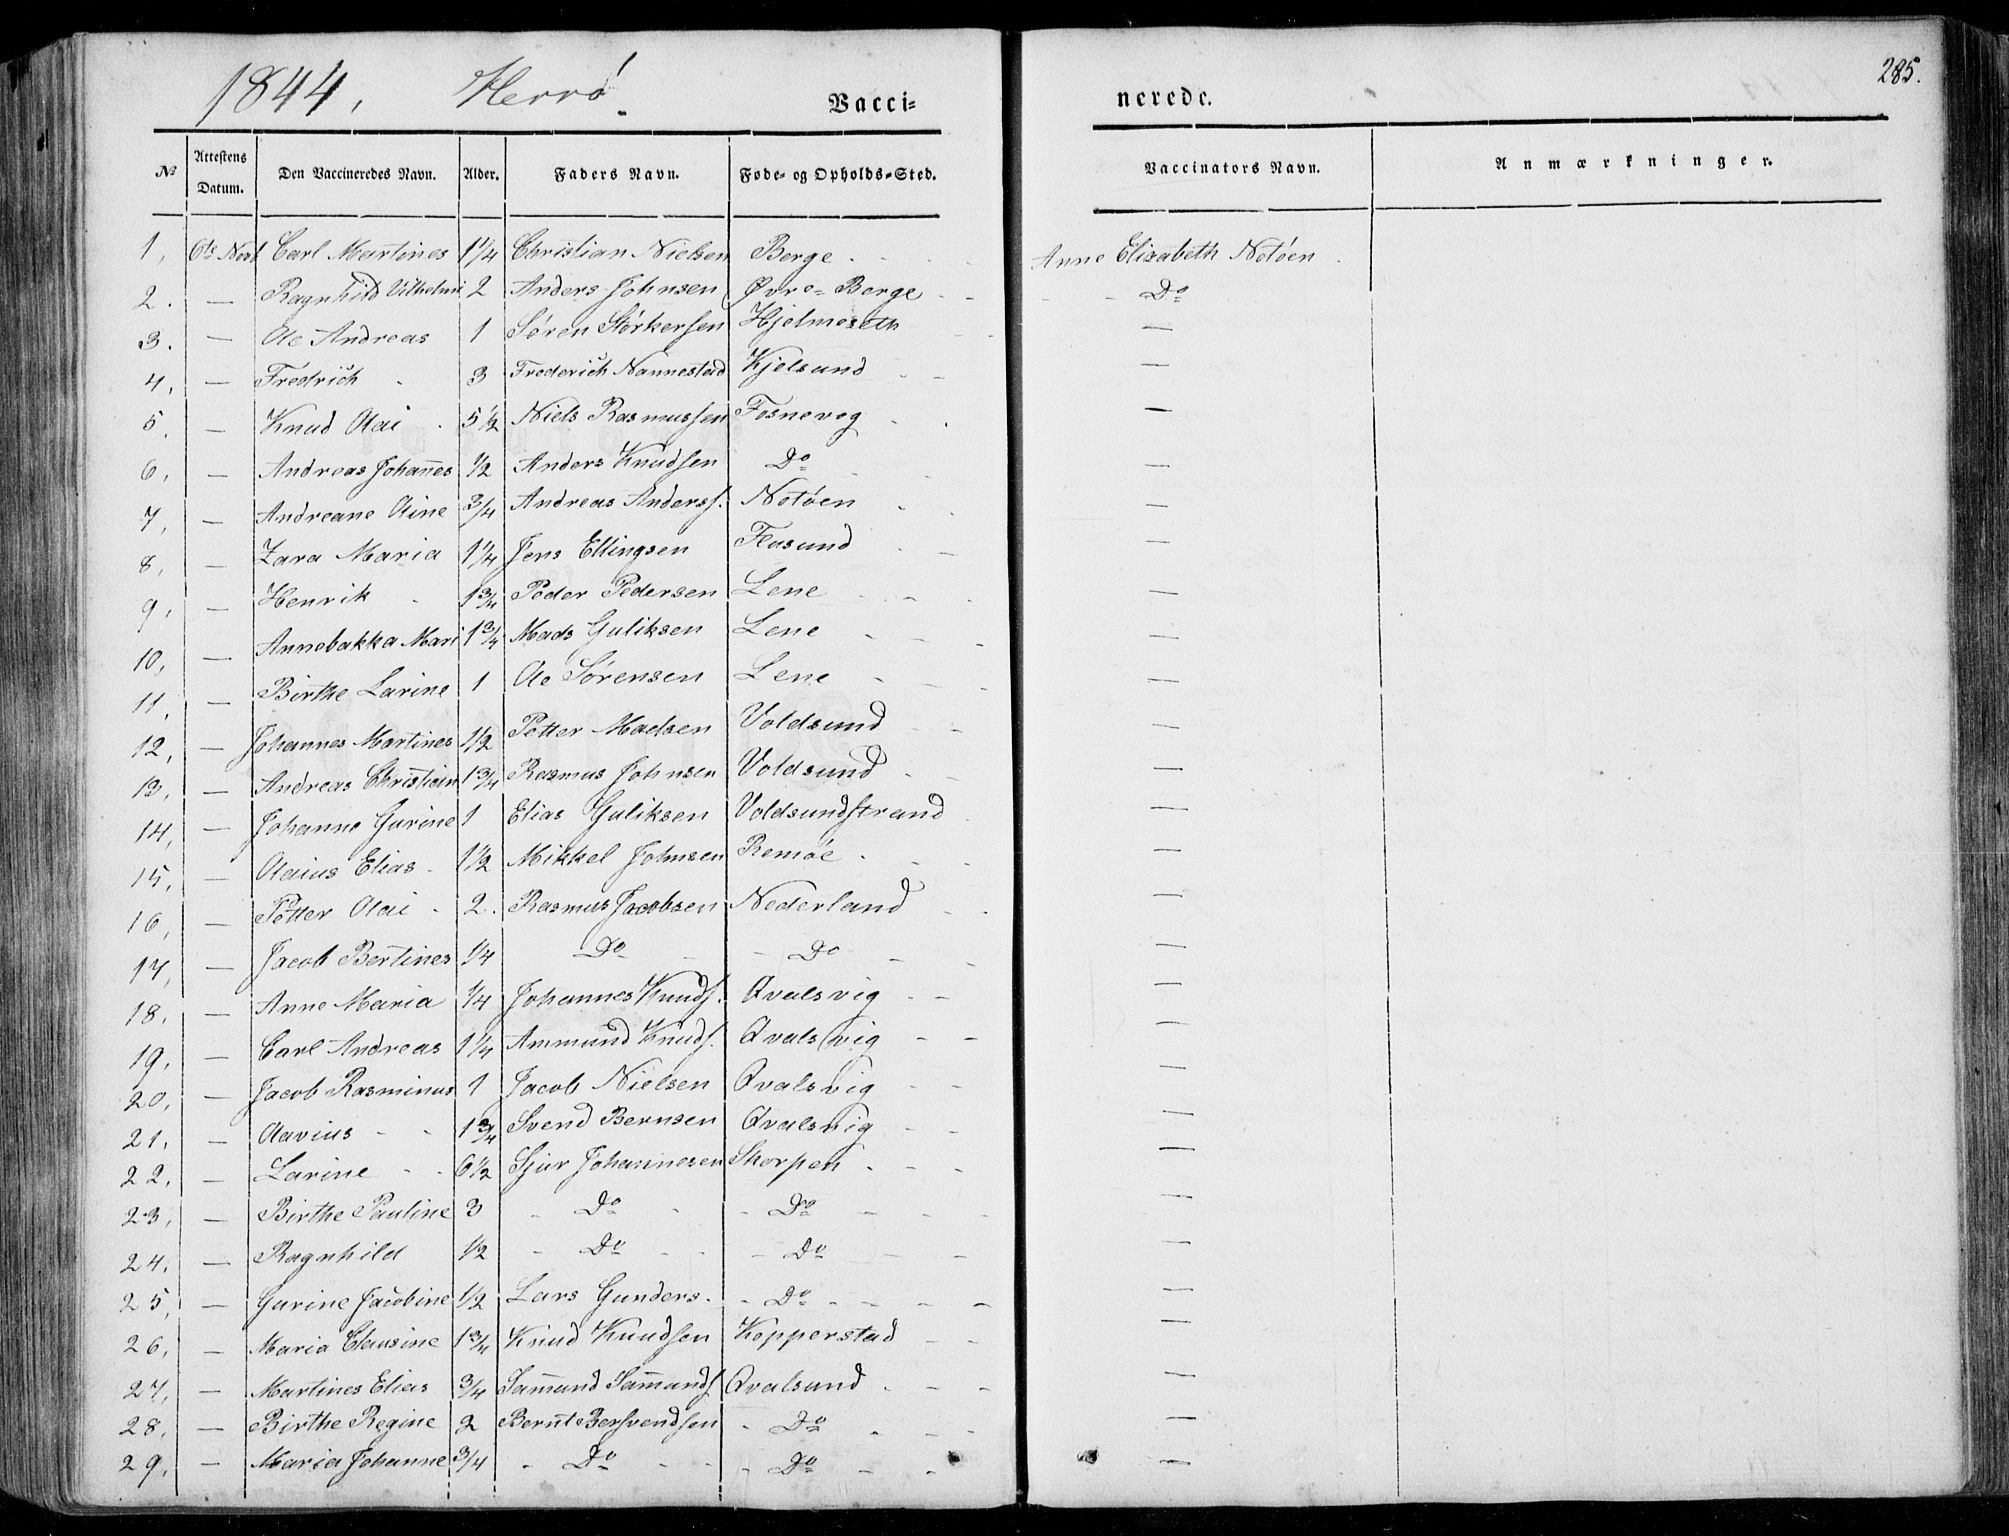 1844. Herrø. Vacci= nerede. 285.
№ Attestens Datum. Den Vaccineredes Navn. Alder. Faders Navn. Føde- og Opholds-Sted. Vaccinators Navn. Anmærkninger.
1, 6te Novb Carl Martines 1¼ Christian Nielsen Berge Anne Elisabeth Notøen
2. — Ragnhild Vilhelmi 2 Anders Johnsen Øvre=Berge Do
3. — Ole Andreas 1 Søren Størkersen Hjelmeseth —
4, — Fredrich 3 Frederich Nannestad Kjelsund —
5. — Knud Olai 5½ Niels Rasmussen Fosnevog —
6, — Andreas Johannes ½ Anders Knudsen Do —
7, — Andreane Oline ¾ Andreas Anderss. Notøen —
8, — Zara Maria 1¼ Jens Ellingsen Flusund —
9, — Henrik 1¾ Peder Pedersen Lene —
10, — Annebakka Mari 1¾ Mads Guliksen Lene —
11, — Birthe Larine 1 Ole Sørensen Lene —
12, — Johannes Martines ½ Petter Madsen Voldsund —
13, — Andreas Christian 1¾ Rasmus Johnsen Voldsund —
14, — Johanne Gurine 1 Elias Guliksen Voldsundstrand —
15, — Olaius Elias 1½ Mikkel Johnsen Remøe —
16, — Petter Olai 2. Rasmus Jacobsen Nederland —
17, — Jacob Bertines ¼ Do Do —
18, — Anne Maria ¼ Johannes Knuds. Qvalsvig —
19, — Carl Andreas 1¼ Ammund Knuds. Qvalsvig —
20, — Jacob Rasminus 1 Jacob Nielsen Qvalsvig —
21. — Olavius 1¾ Svend Bernsen Qvalsvig —
22. — Larine 6½ Sjur Johannesen Skorpen —
23, — Birthe Pauline 3 Do Do —
24. — Ragnhild ½ Do Do —
25, — Gurine Jacobine ½ Lars Gunders. Do —
26, — Maria Clausine 1¾ Knud Knudsen Kopperstad —
27, — Martines Elias ¾ Samund Samunds Qvalsund —
28. — Birthe Regine 2 Bernt Bersvendsen Do —
29. — Maria Johanne ¾ Do Do —